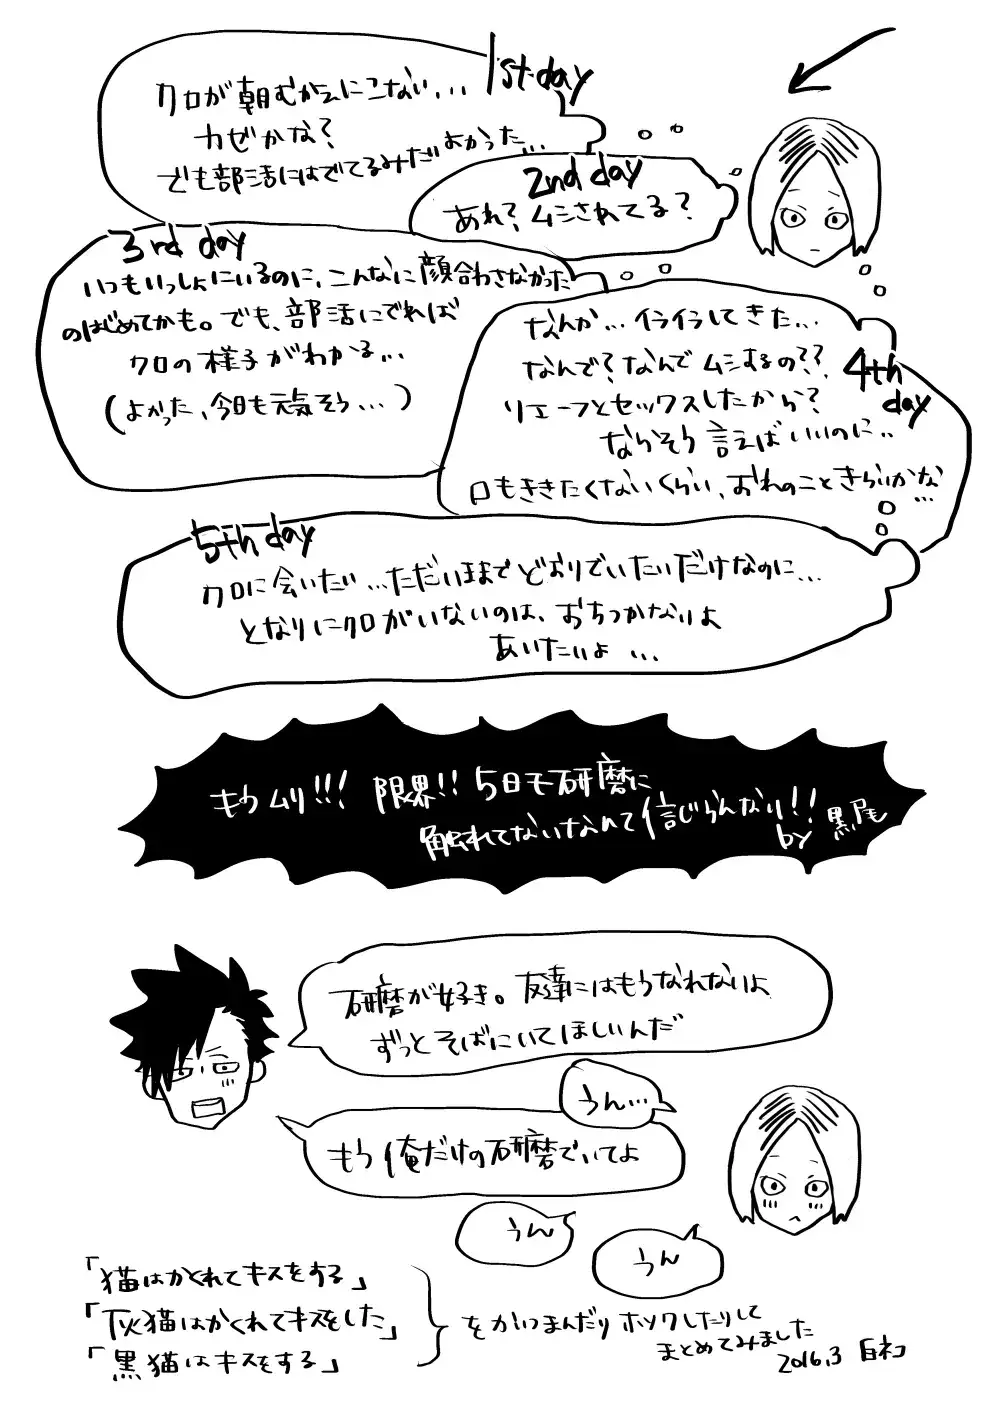 1st day
クロが朝むかえにこない...
カゼかな?
でも部活にはでてるみたいだよかった...
2nd day
あれ?ムシされてる?
3rd day
いつもいっしょにいるのに、こんなに顔合わさなかった
のはじめてかも。でも、部活にでれば
クロの様子がわかる...
(よかった、今日も元気そう...)
4th day
なんか...イライラしてきた...
なんで?なんでムシするの??
リエーフとセックスしたから?
ならそう言えばいいのに..
口もききたくないくらい、おれのこときらいかな...
5th day
クロに会いたい...ただいままでどおりでいたいだけなのに...
となりにクロがいないのは、おちつかないよ
あいたいよ...
もうムリ!!!限界!!5日も研磨に
触れてないなんて信じらんない!!
by 黒尾
研磨が好き。友達にはもうなれないよ
ずっとそばにいてほしいんだ
うん...
もう俺だけの研磨でいてよ
うん
うん
「猫はかくれてキスをする」
「灰猫はかくれてキスをした」
「黒猫はキスをする」
をかいつまんだりボツワしたりして
まとめてみました
2016.3 白ネコ